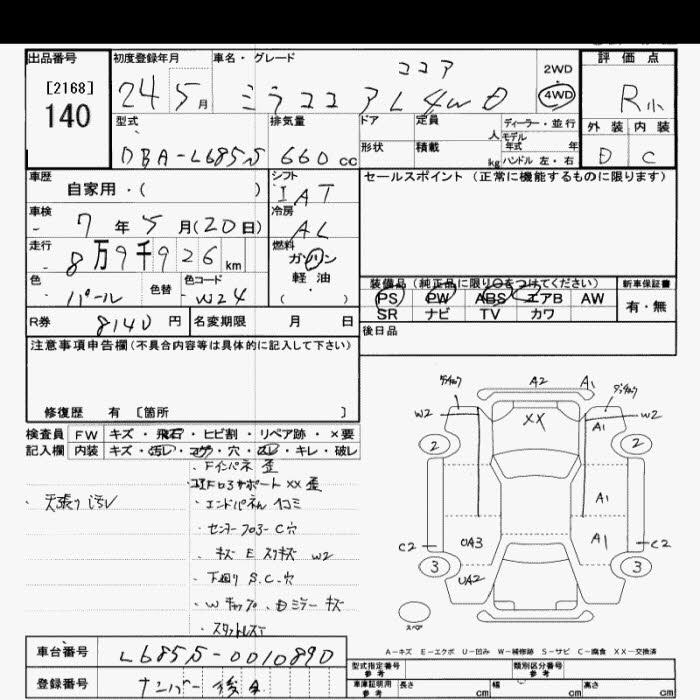 出品番号
[2168]
140
初度登録年月
24 5月
車名・グレード
ココア
ミラココア L 4WD
2WD
4WD
評価点
R小
外装 内装
D C
型式
DBA-L685S
排気量
660 cc
ドア 定員 人
形状 積載 kg
ディーラー・並行
モデル
年式 年
ハンドル 左・右
車歴
自家用・( )
シフト
IAT
セールスポイント (正常に機能するものに限ります)
車検
- 7年5月(20日)
冷房
AL
走行
- 8万9千926km
燃料
ガソリン
軽油
( )
色
パール
色替
色コード
W24
装備品(純正品に限り○をつけてください)
PS PW ABS エアB AW
SR ナビ TV カワ
新車保証書
有・無
R券 8140円
名変期限 月 日
後日品
注意事項申告欄(不具合内容等は具体的に記入して下さい)
修復歴 有 [箇所 ]
検査員 FW キズ・飛石・ヒビ割・リペア跡・×要
記入欄 内装 キズ・汚レ・コゲ・穴・スレ・キレ・破レ
・天張り汚レ
・Fインパネ 歪
コアサポート XX 歪
・エンドパネル凹コミ
・センターフロアーC穴
・キズ E スリキズ W2
・下廻り S.C.穴
・Wキャップ、Dミラーキズ
・スタットレスT
A2 A1
W2 XX W2
A1
2 2
A1
C2 UA3 A1 C2
3 3
UA2
スペア
A-キズ E-エクボ U-凹み W-補修跡 S-サビ C-腐食 XX-交換済
車台番号 L685S-0010890
登録番号 ナンバー後日
型式指定番号
参考
類別区分番号
参考
車庫証明用
参考
長さ cm 幅 cm 高さ cm